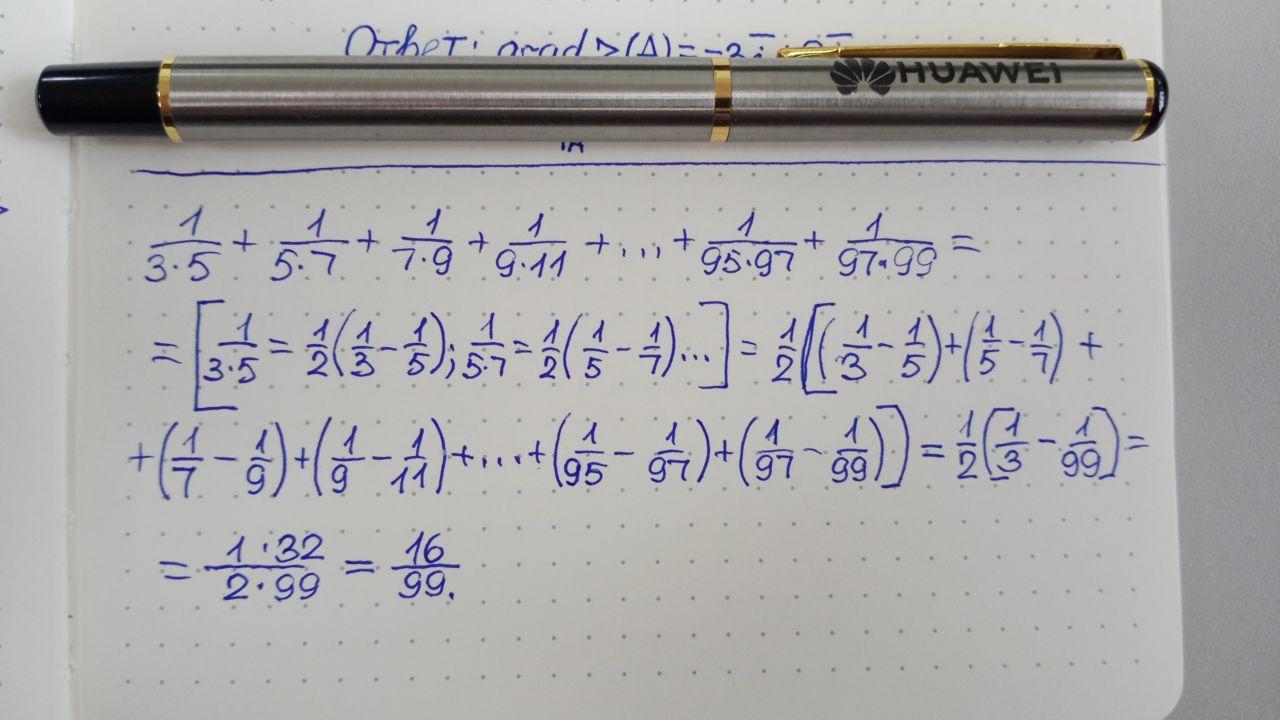 Ответ: grad
HUAWEI
1/(3·5) + 1/(5·7) + 1/(7·9) + 1/(9·11) + ... + 1/(95·97) + 1/(97·99) =
= [1/(3·5) = 1/2(1/3 - 1/5); 1/(5·7) = 1/2(1/5 - 1/7)...] = 1/2[(1/3 - 1/5) + (1/5 - 1/7) +
+ (1/7 - 1/9) + (1/9 - 1/11) + ... + (1/95 - 1/97) + (1/97 - 1/99)] = 1/2[1/3 - 1/99] =
= (1·32)/(2·99) = 16/99.